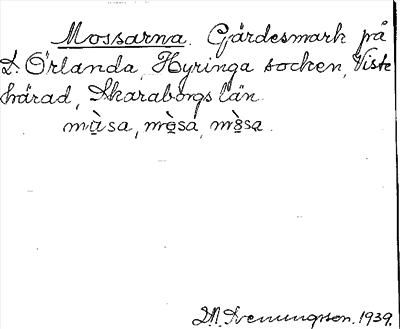 Mossarna. Gärdesmark på
D. Örlanda, Hyringa socken, Viste
härad, Skaraborgs län.
mɑ̀sa, mɷ̀sa, mɷ̀sa.
1939.